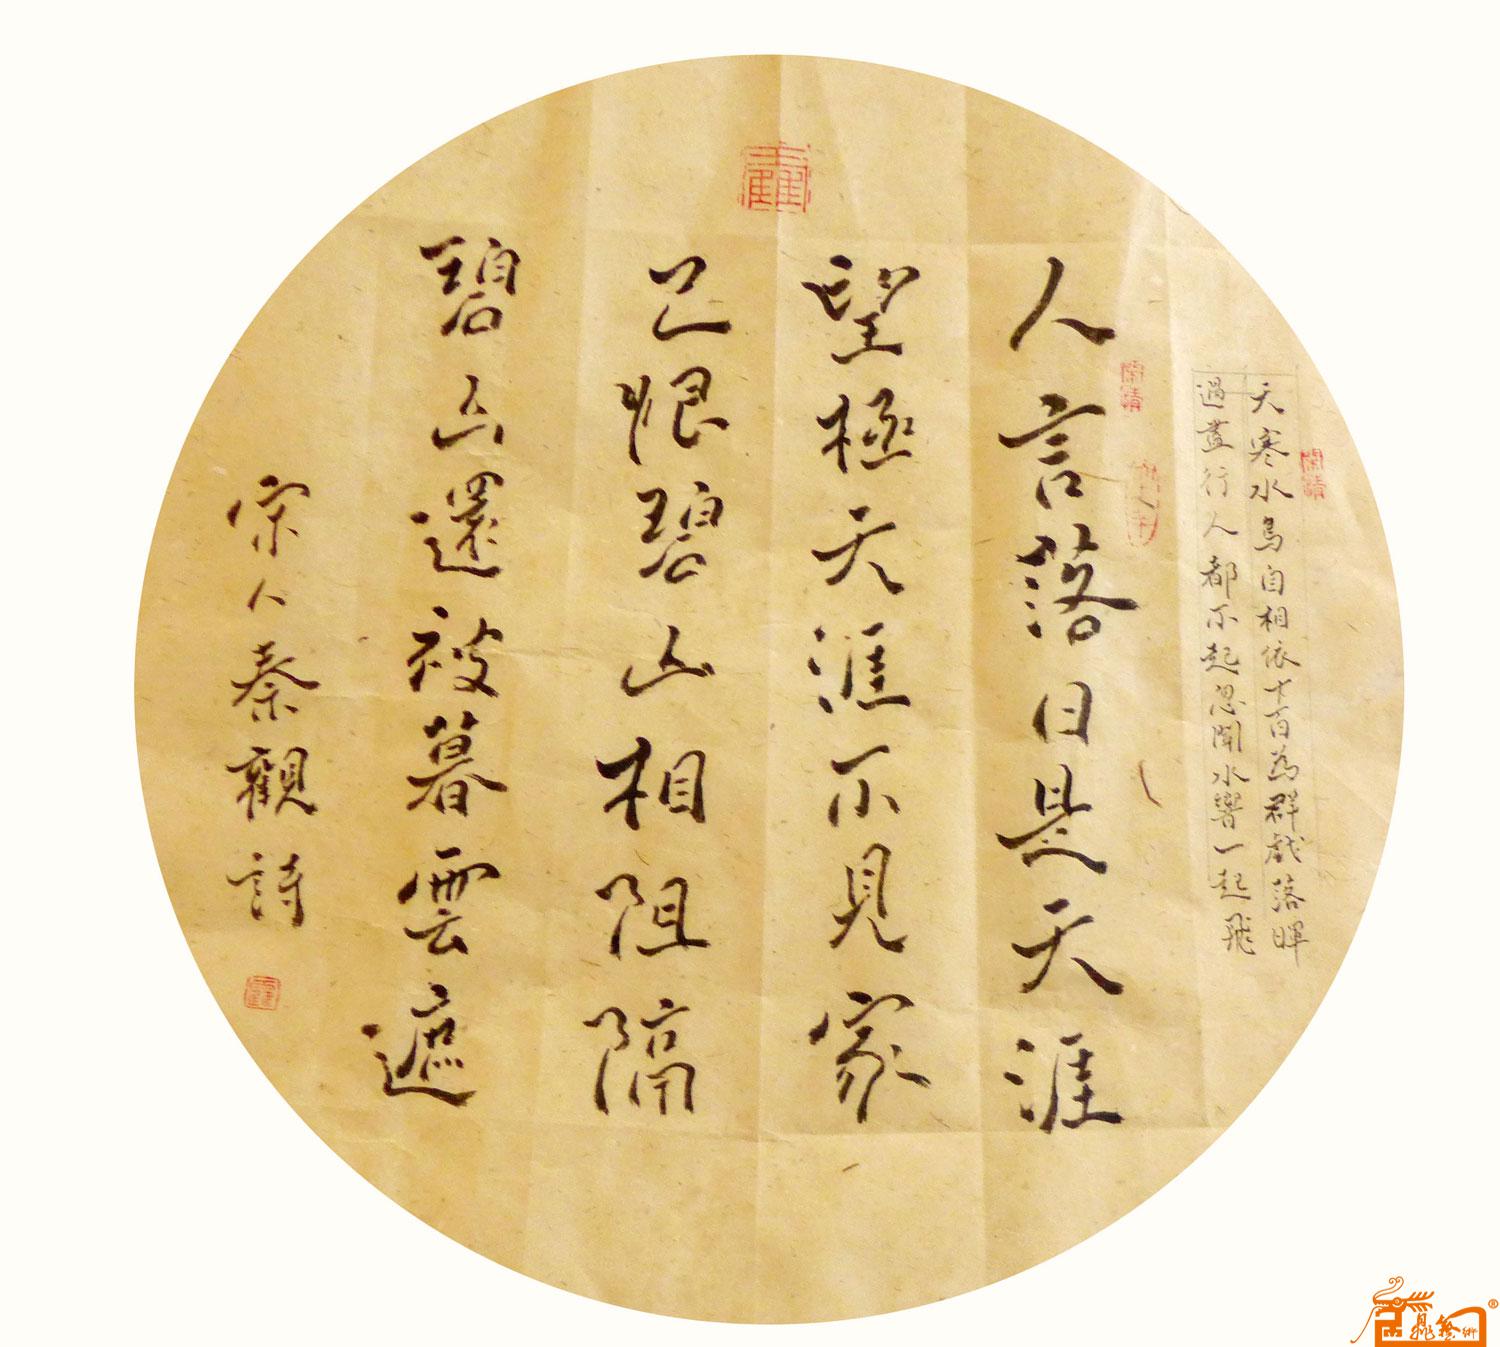 天寒水鳥自相依十百為群戲落暉
過盡行人都不起忽聞水響一起飛
人言落日是天涯
望極天涯不見家
已恨碧山相阻隔
碧山還被暮雲遮
宋人秦觀詩